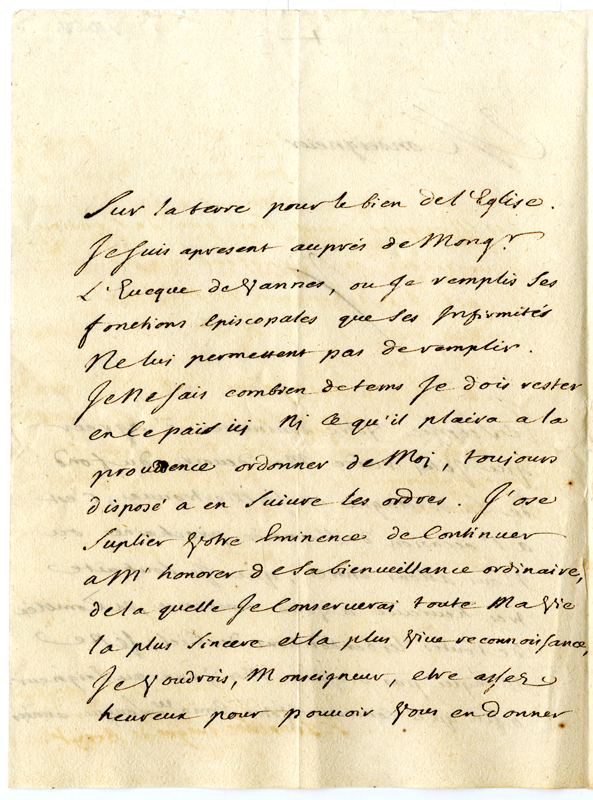 Sur la terre pour le bien de l'Eglise.
Je suis apresent auprés de Mongr
L'Eveque de Vannes, ou Je remplis ses
fonctions Episcopales que ses Infirmités
Ne lui permettent pas de remplir.
Je Ne sais combien de tems Je dois rester
en le païs ici Ni Ce qu'il plaira a la
providence ordonner de Moi, toujours
disposé a en suivre les ordres. J'ose
suplier Votre Eminence de Continuer
a M'honorer de sa bienveillance ordinaire,
de la quelle Je Conserverai toute Ma Vie
la plus sincere et la plus Vive reconnoissance,
Je Voudrois, Monseigneur, etre assez
heureux pour pouvoir Vous en donner